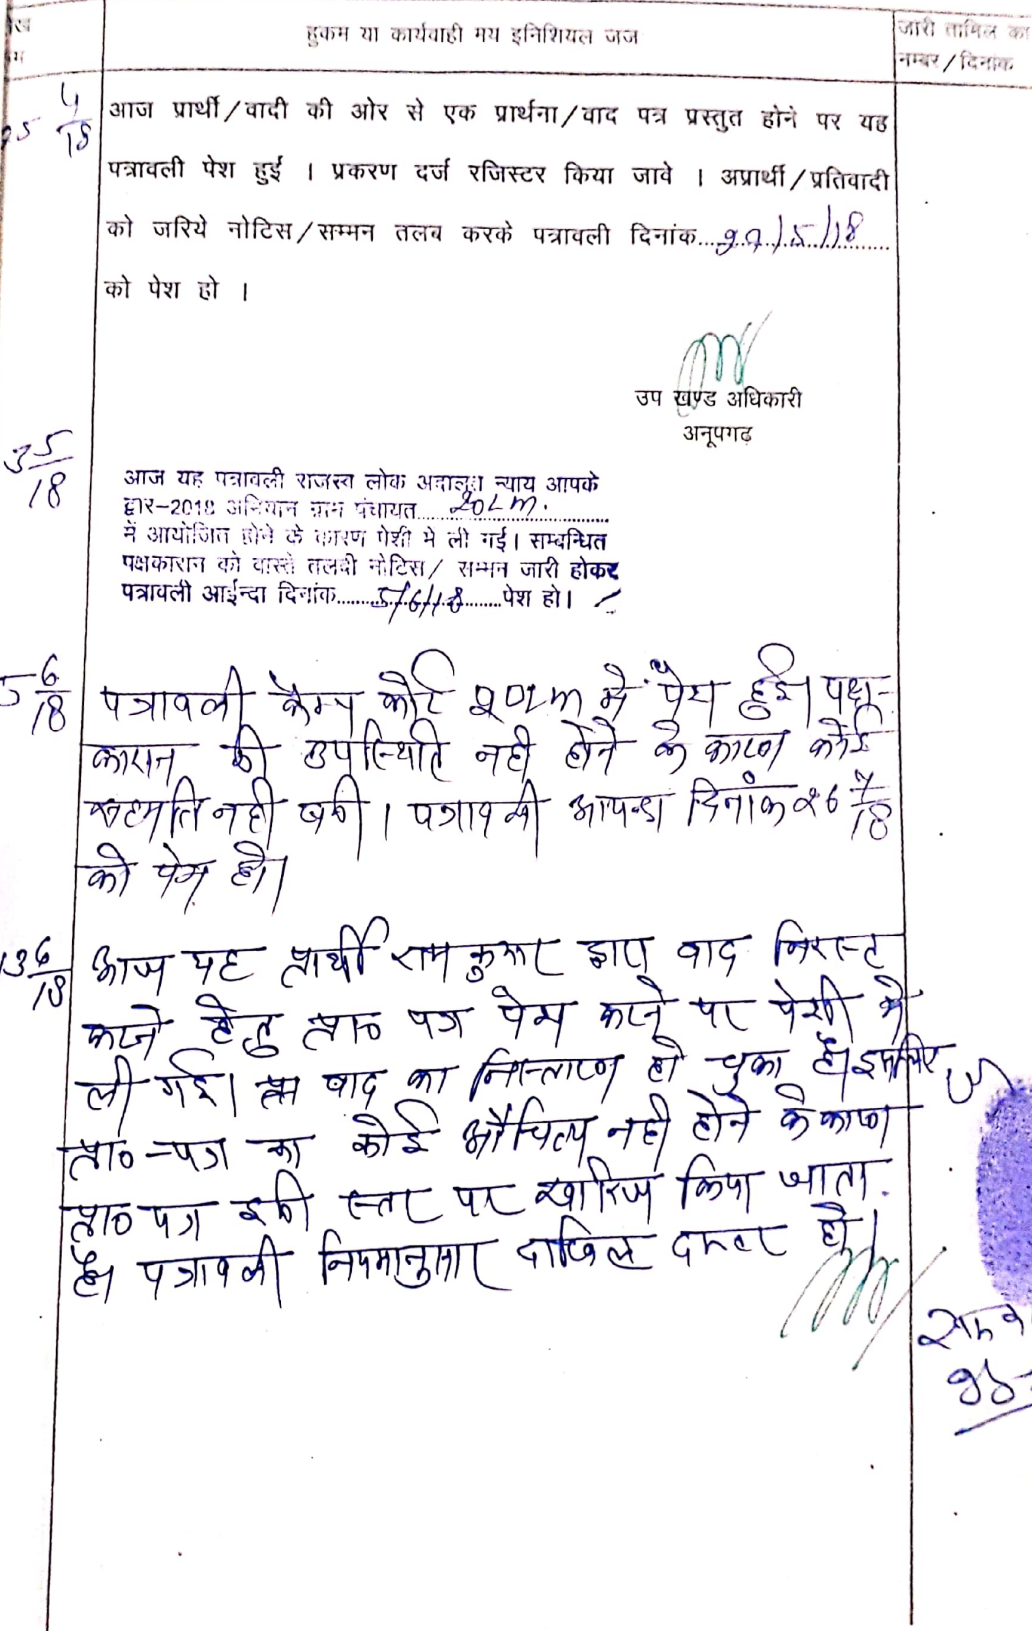 हुकम या कार्यवाही मय इनिशियल जज
जारी तामिल का
नम्बर/दिनांक
4/18
आज प्रार्थी/वादी की ओर से एक प्रार्थना/वाद पत्र प्रस्तुत होने पर यह
पत्रावली पेश हुई । प्रकरण दर्ज रजिस्टर किया जावे । अप्रार्थी/प्रतिवादी
को जरिये नोटिस/सम्मन तलब करके पत्रावली दिनांक.../5/18
को पेश हो ।
उप खण्ड अधिकारी
अनूपगढ़
3 5/18
आज यह पत्रावली राजस्व लोक अदालत न्याय आपके
द्वार-2018 अभियान ग्राम पंचायत.....20LM.
में आयोजित होने के कारण पेशी मे ली गई। सम्बन्धित
पक्षकारान को वास्ते तलबी नोटिस/ सम्मन जारी होकर
पत्रावली आईन्दा दिनांक.....5/6/18.....पेश हो।
5 6/18
पत्रावली कैम्प कोर्ट 20LM में पेश हुई। पक्ष-
कारान की उपस्थिति नही होने के कारण कोई
सहमति नही बनी। पत्रावली आयन्दा दिनांक 26 /18
को पेश हो।
13 6/18
आज यह प्रार्थी राम कुमार द्वारा वाद निरस्त
करने हेतु प्रा० पत्र पेश करने पर पेशी मे
ली गई। वाद का निस्तारण हो चुका है। इसलिए
प्रा०-पत्र का कोई औचित्य नही होने के कारण
प्रा० पत्र इसी स्तर पर खारिज किया जाता
है। पत्रावली नियमानुसार दाखिल दफ्तर हो।